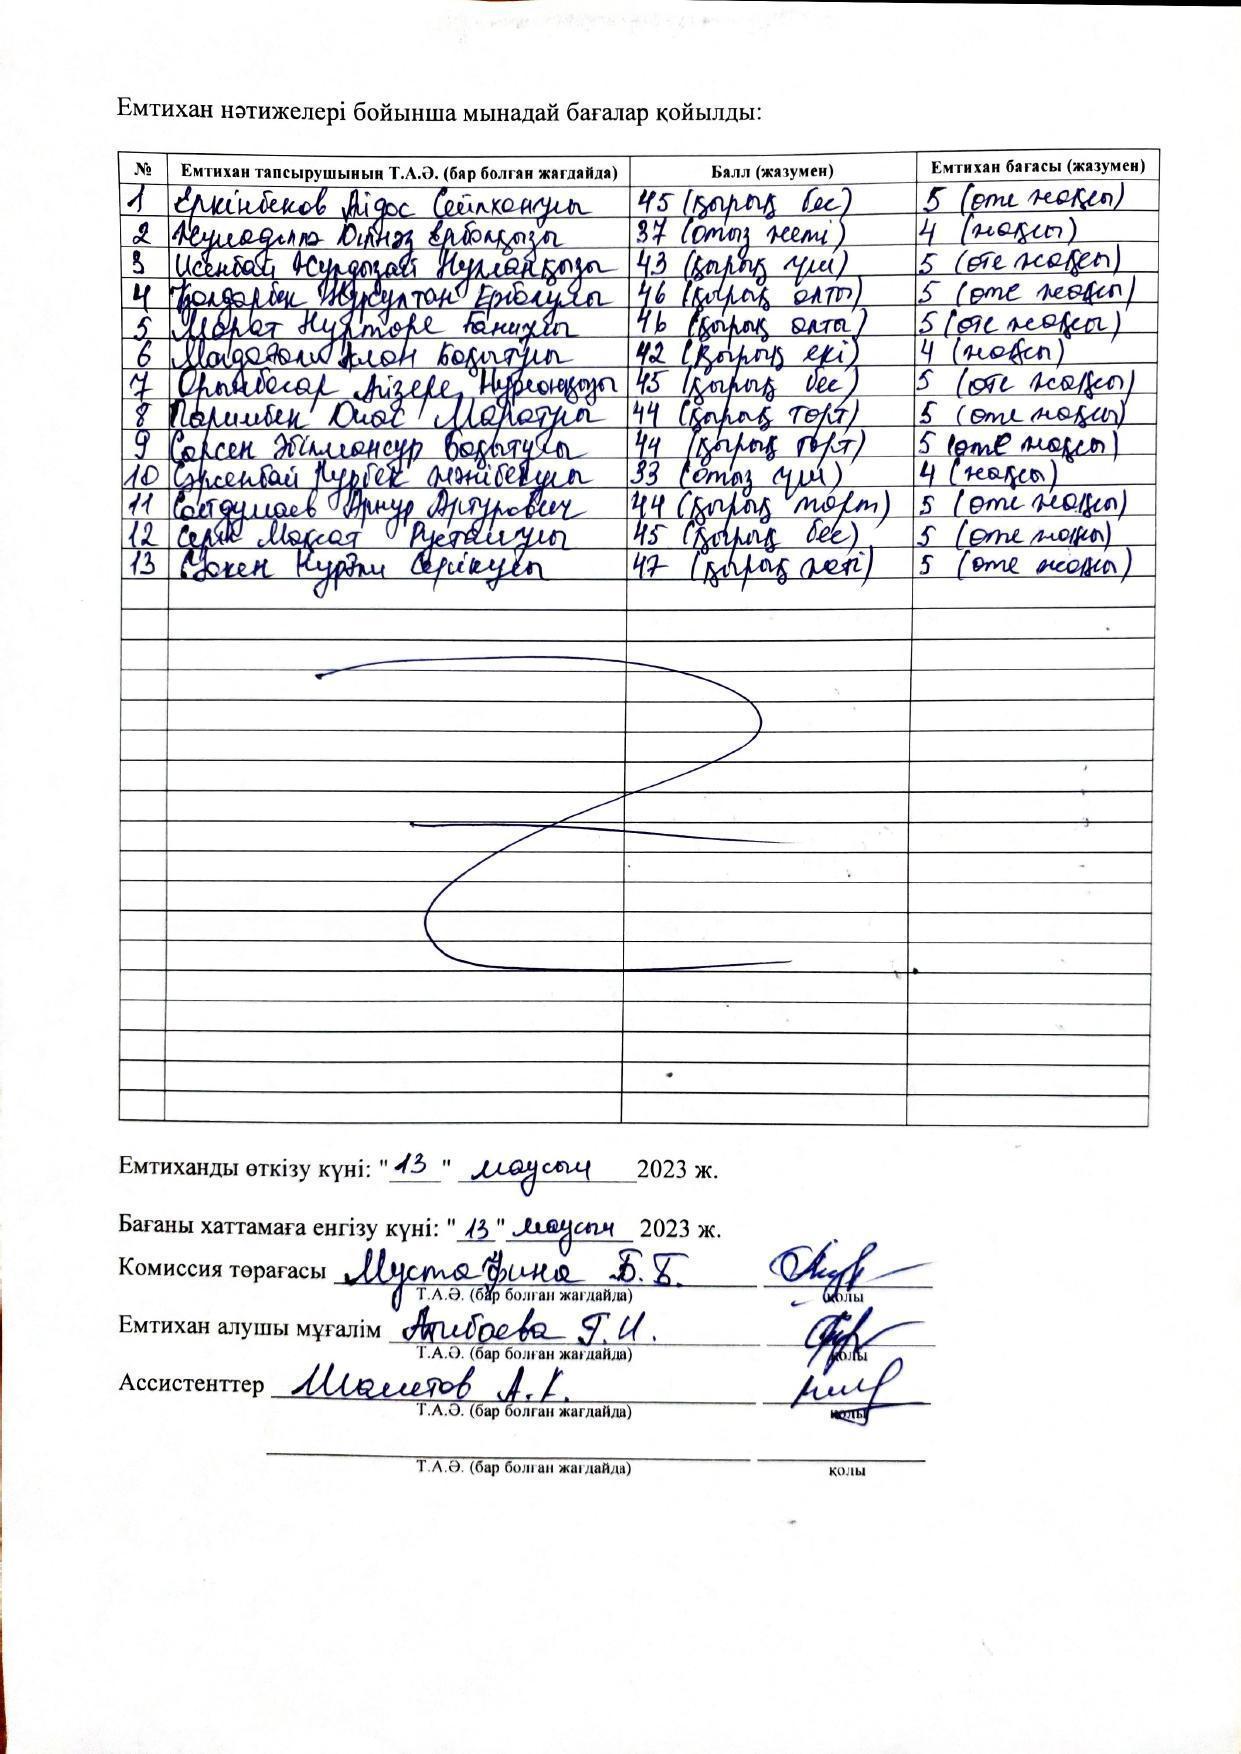 Емтихан нәтижелері бойынша мынадай бағалар қойылды:
№ Емтихан тапсырушының Т.А.Ә. (бар болған жағдайда) Балл (жазумен) Емтихан бағасы (жазумен)
1 Еркінбеков Айдос Сейлханұлы 45 (қырық бес) 5 (өте жақсы)
2 Жұмаділла Ділназ Ерболқызы 37 (отыз жеті) 4 (жақсы)
3 Исенбай Жұлдызай Нұрланқызы 43 (қырық үш) 5 (өте жақсы)
4 Қалдарбек Нұрсұлтан Ерболұлы 46 (қырық алты) 5 (өте жақсы)
5 Марат Нұртөре Ғаниұлы 46 (қырық алты) 5 (өте жақсы)
6 Бақытұлы 42 (қырық екі) 4 (жақсы)
7 Орынбасар Айзере 45 (қырық бес) 5 (өте жақсы)
8 Паримбек Диас Маратұлы 44 (қырық төрт) 5 (өте жақсы)
9 Сәрсен Әбілмансұр Бақытұлы 44 (қырық төрт) 5 (өте жақсы)
10 Сәрсенбай Нұрбек Жәнібекұлы 33 (отыз үш) 4 (жақсы)
11 Сәлдумаев Арнур Артурович 44 (қырық төрт) 5 (өте жақсы)
12 Серік Мақсат Рустамұлы 45 (қырық бес) 5 (өте жақсы)
13 Нұрәли Серікұлы 47 (қырық жеті) 5 (өте жақсы)
Емтиханды өткізу күні: "13" маусым 2023 ж.
Бағаны хаттамаға енгізу күні: "13" маусым 2023 ж.
Комиссия төрағасы Мустафина Б.Б.
Т.А.Ә. (бар болған жағдайда) қолы
Емтихан алушы мұғалім Апибаева Г.И.
Т.А.Ә. (бар болған жағдайда) қолы
Ассистенттер Шаметов А.К.
Т.А.Ә. (бар болған жағдайда) қолы
Т.А.Ә. (бар болған жағдайда) қолы